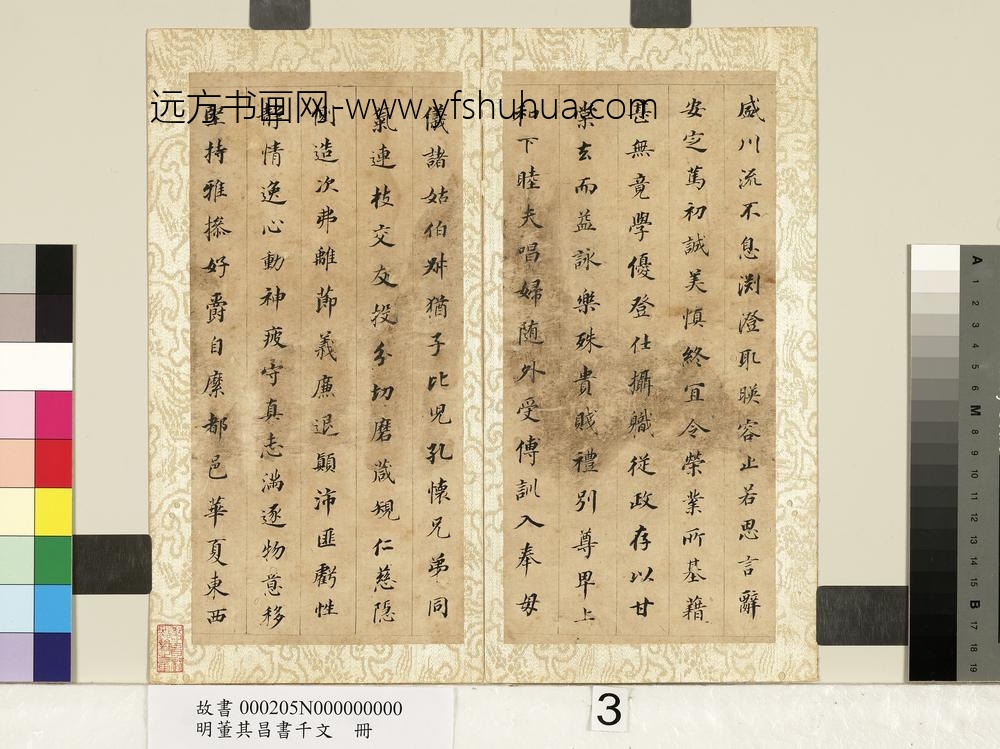 远方书画网-www.yfshuhua.com
盛川流不息渊澄取暎容止若思言辭
安定篤初誠美慎終宜令榮業所基藉
甚無竟學優登仕攝職從政存以甘
棠去而益詠樂殊貴賤禮別尊卑上
和下睦夫唱婦随外受傅訓入奉母
儀諸姑伯叔猶子比児孔懷兄弟同
氣連枝交友投分切磨箴規仁慈隱
惻造次弗離莭義廉退顛沛匪虧性
靜情逸心動神疲守真志滿逐物意移
堅持雅操好爵自縻都邑華夏東西
故書 000205N000000000
明董其昌書千文 冊
3
A 1 2 3 4 5 6 M 8 9 10 11 12 13 14 15 B 17 18 19